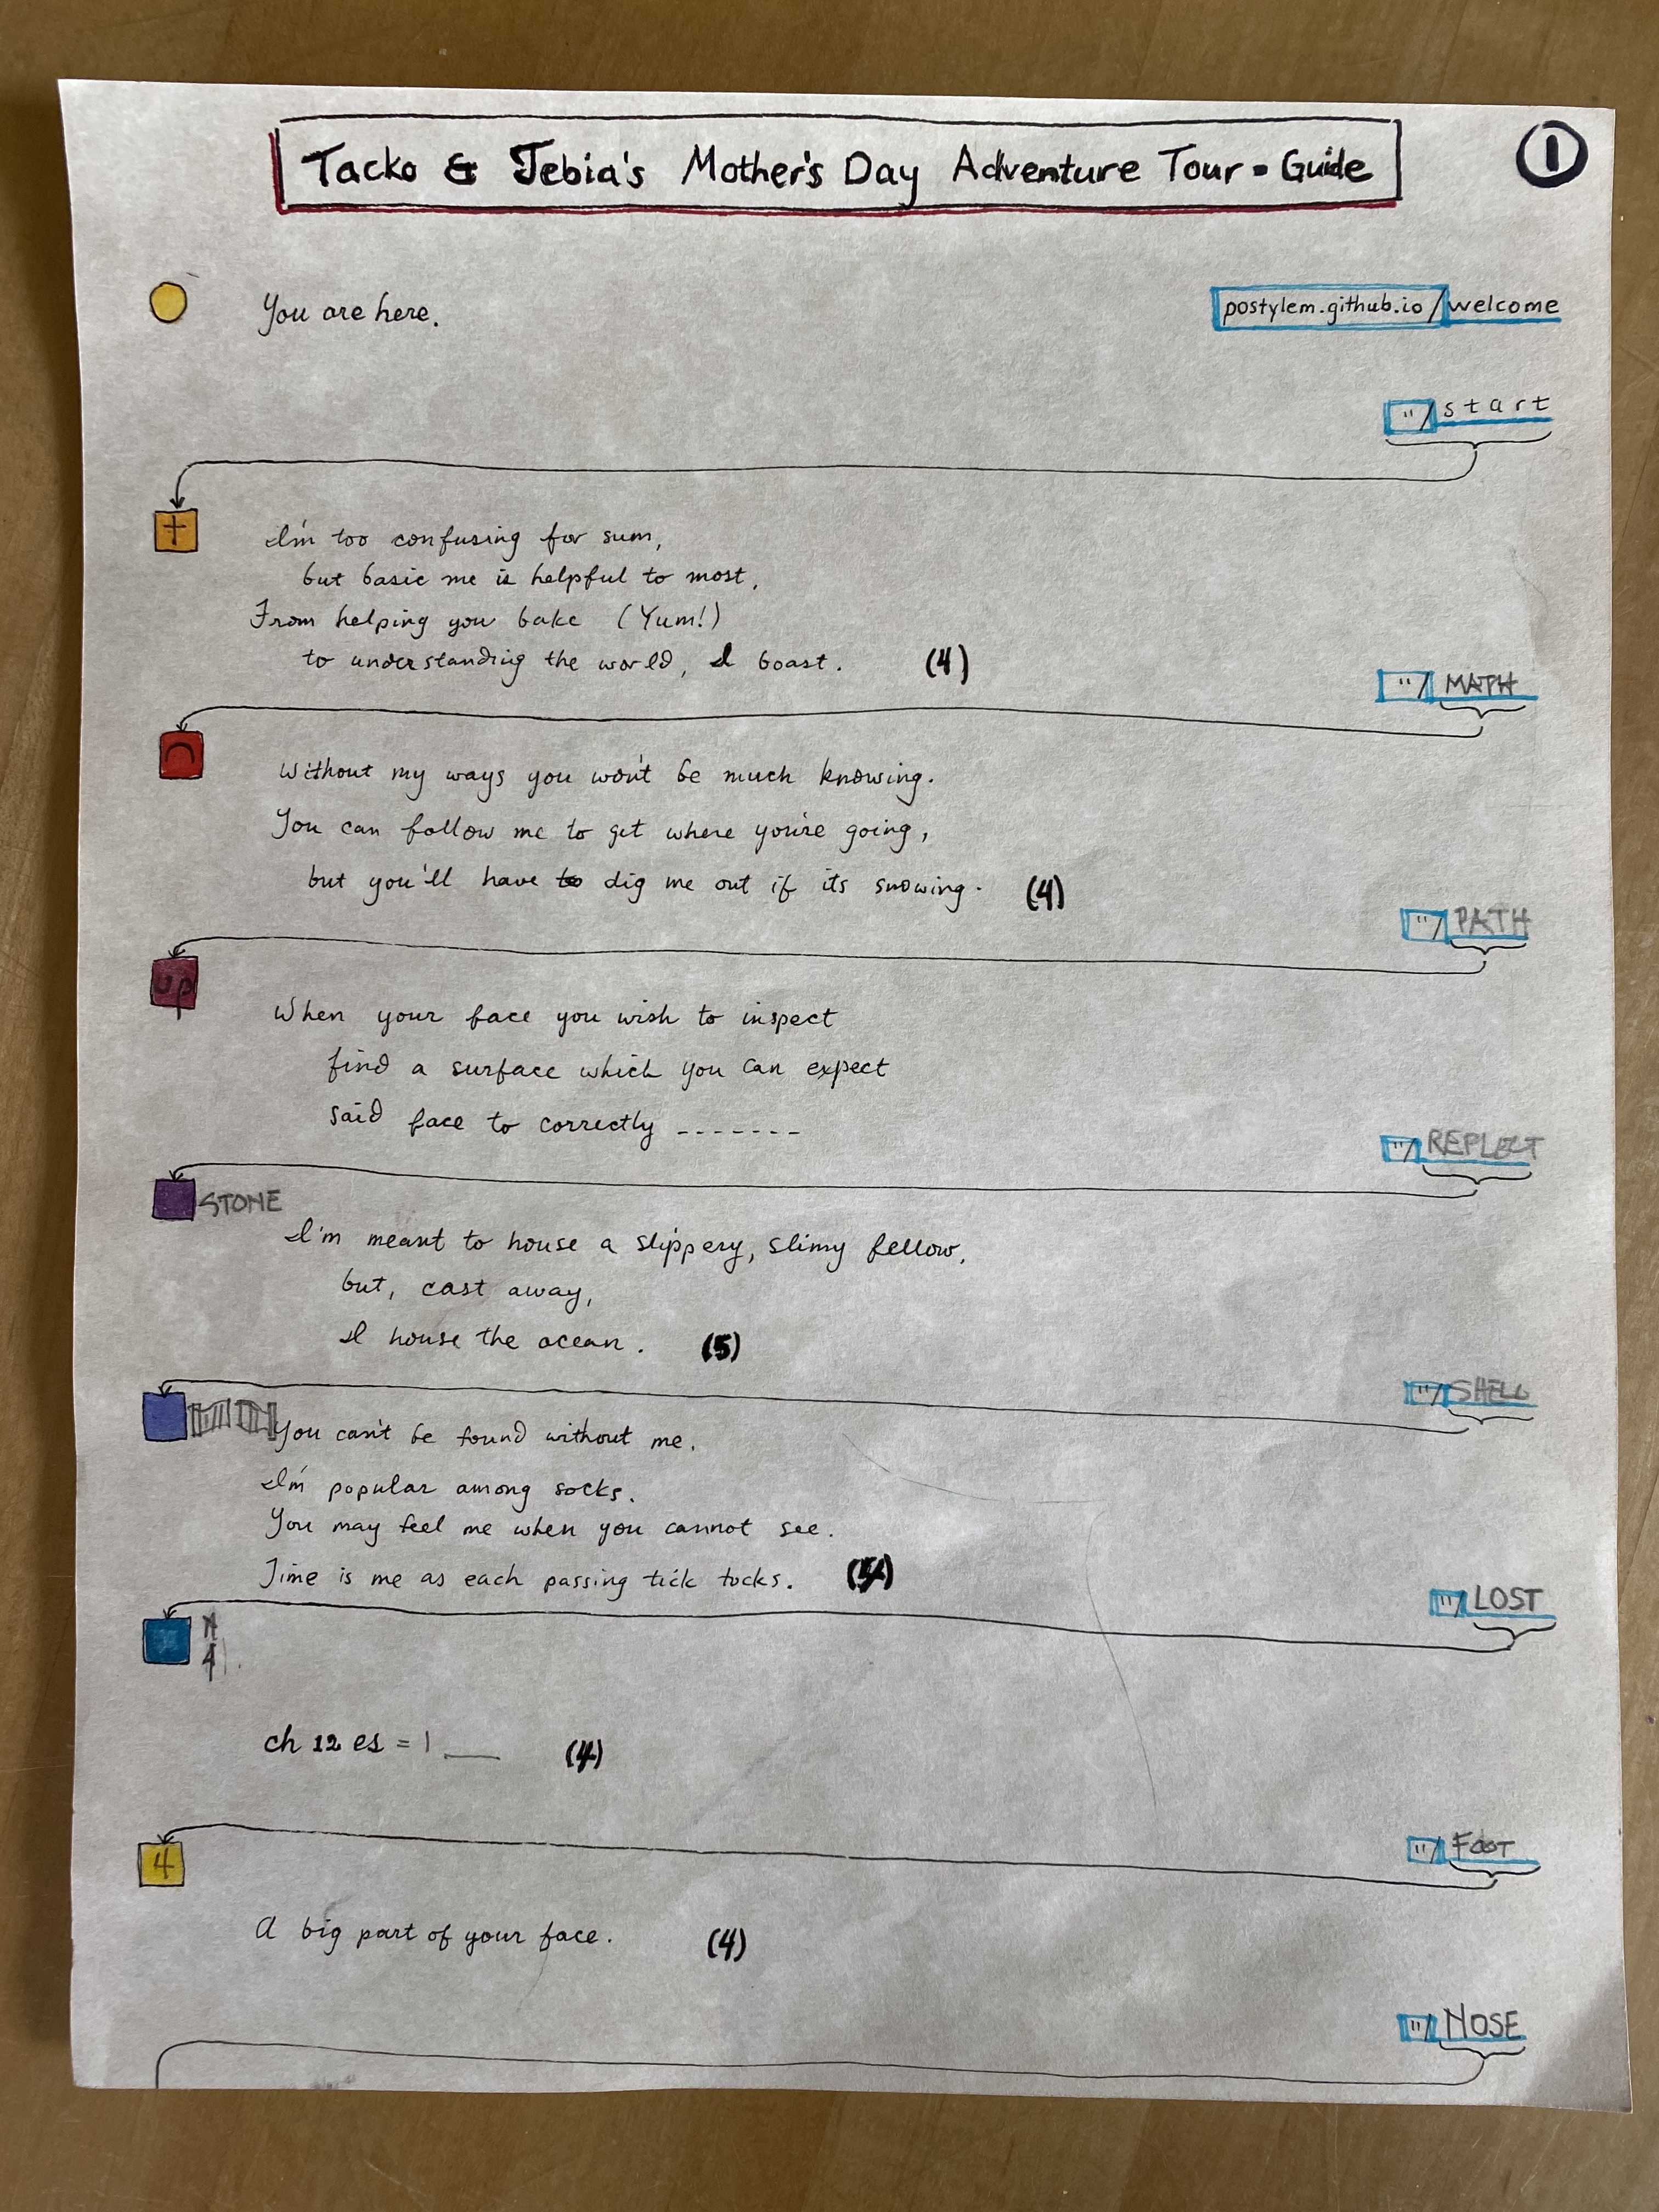 Tacko & Tebia's Mother's Day Adventure Tour-Guide
1
You are here.
postylem.github.io/welcome
"/start
+
I'm too confusing for sum,
but basic me is helpful to most.
From helping you bake (Yum!)
to understanding the world, I boast. (4)
"/MATH
Without my ways you won't be much knowing.
You can follow me to get where you're going,
but you'll have to dig me out if its snowing. (4)
"/PATH
up
When your face you wish to inspect
find a surface which you can expect
said face to correctly -------
"/REFLECT
STONE
I'm meant to house a slippery, slimy fellow,
but, cast away,
I house the ocean. (5)
"/SHELL
You can't be found without me.
I'm popular among socks.
You may feel me when you cannot see.
Time is me as each passing tick tocks. (4)
"/LOST
ch 12 es = 1 ___ (4)
"/FOOT
4
A big part of your face. (4)
"/NOSE